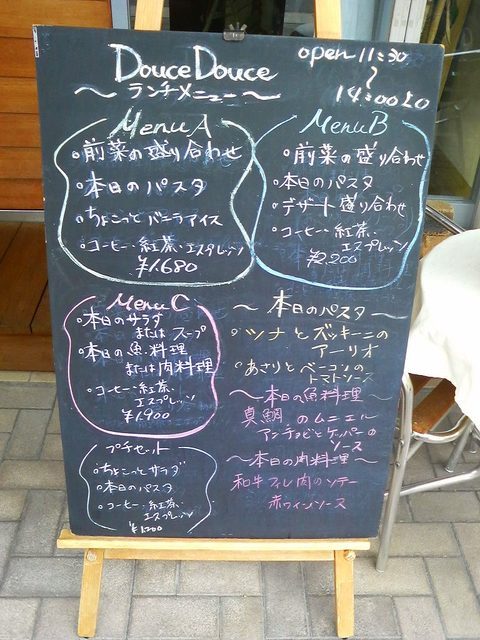 Douce Douce
～ランチメニュー～
open 11:30
～
14:00 LO
Menu A
・前菜の盛り合わせ
・本日のパスタ
・ちょこっとバニラアイス
・コーヒー・紅茶・
エスプレッソ
¥1.680
Menu B
・前菜の盛り合わせ
・本日のパスタ
・デザート盛り合わせ
・コーヒー・紅茶・
エスプレッソ
¥2.200
Menu C
・本日のサラダ
またはスープ
・本日の魚料理
または肉料理
・コーヒー・紅茶・
エスプレッソ
¥1.900
プチセット
・ちょこっとサラダ
・本日のパスタ
・コーヒー・紅茶・
エスプレッソ
¥1.200
～本日のパスタ～
・ツナとズッキーニの
アーリオ
・あさりとベーコンの
トマトソース
～本日の魚料理～
真鯛のムニエル
アンチョビとケッパーの
ソース
～本日の肉料理～
和牛フィレ肉のソテー
赤ワインソース